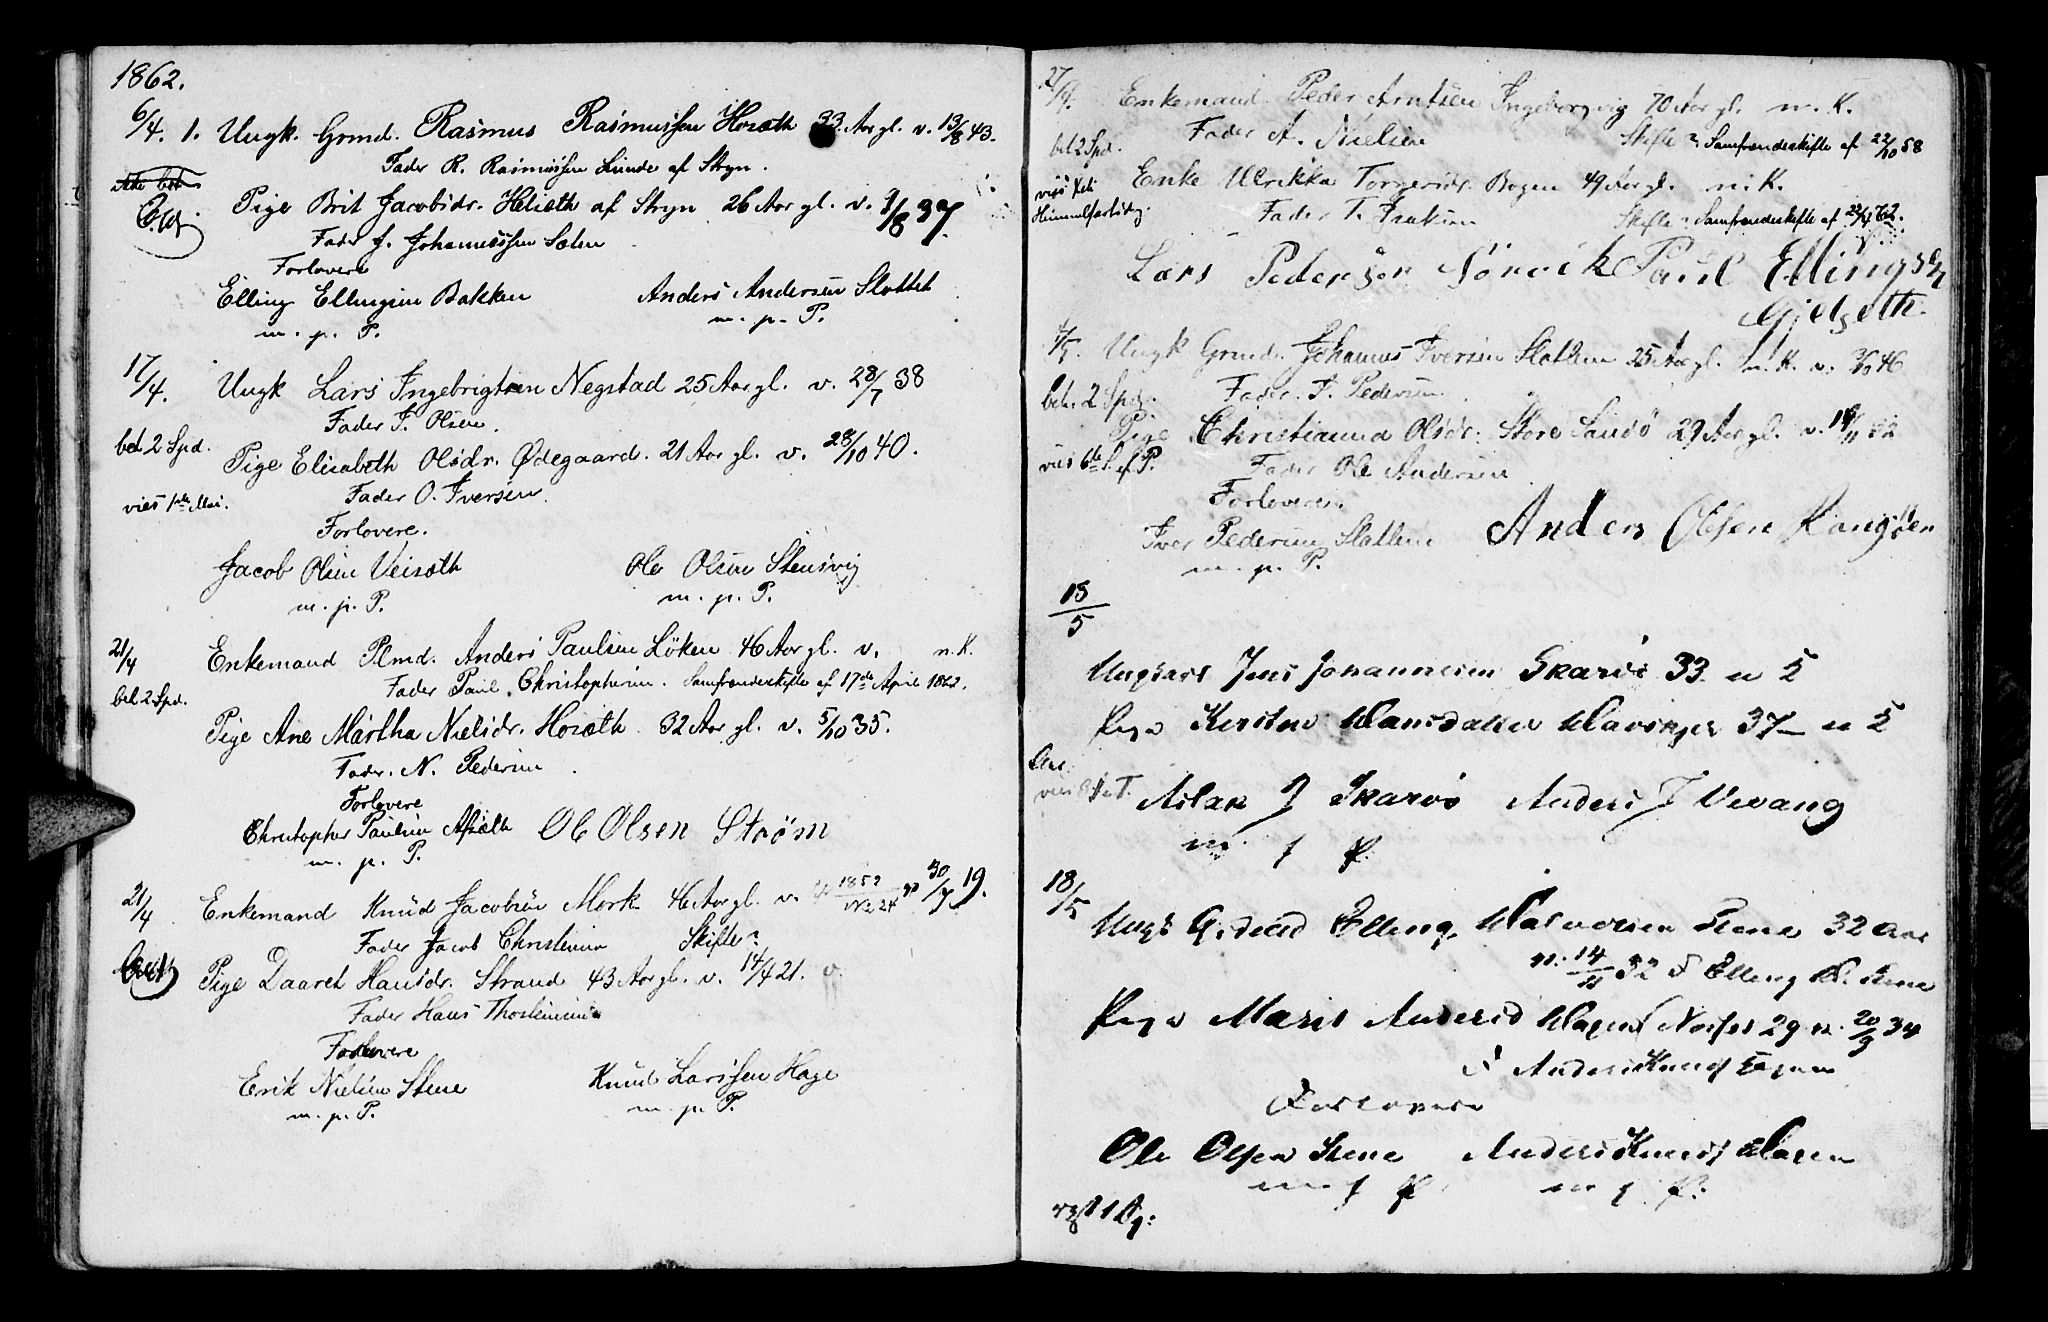 1862.
6/4. 1. Ungk. Grmd. Rasmus Rasmussen Horsæth 33 Aar gl. v. 13/8 43.
Fader R. Rasmussen Lunde af Stryn.
ikke bet.
Pige Brit Jacobsdr. Helsæth af Stryn 26 Aar gl. v. 9/8 37.
Fader J. Johannessen
Forlovere
Elling Ellingsen Bakken Anders Andersen Slottet
m. p. P. m. p. P.
17/4. Ungk Lars Ingebrigtsen Negstad 25 Aar gl. v. 28/7 38
Fader I. Olsen.
bet. 2 Spd. Pige Elisabeth Olsdr. Ødegaard. 21 Aar gl. v. 28/10 40.
vies 1ste Mai. Fader O. Iversen.
Forlovere.
Jacob Olsen Veisæth Ole Olsen Stensvig
m. p. P. m. p. P.
21/4 Enkemand Plmd. Anders Paulsen Löken 46 Aar gl. v. n. K.
Fader Paul Christophersen. Samfrændeskifte af 17de April 1862.
bet 2 Spd.
Pige Ane Martha Nielsdr. Horsæth 32 Aar gl. v. 5/10 35.
Fader. N. Pedersen
Forlovere
Christopher Paulsen Ole Olsen Strøm
m. p. P.
21/4 Enkemand Knud Jacobsen Mork 46 Aar gl. v. 30/7 19.
Fader Jacob Christensen Skifte?
Pige Daaret Hansdr. Strand 43 Aar gl. v. 14/4 21.
Fader Hans Thorsteinsen
Forlovere
Erik Nielsen Stene Knud Larssen Hage
m. p. P. m. p. P.
27/4. Enkemand Peder Arntsen Ingeborgvig 70 Aar gl. n. K.
bet 2 Spd. Fader A. Nielsen Skifte? Samfrændeskifte af 22/10 58
vies Xsti Enke Ulrikka Torgersdr. Bogen 49 Aar gl. n. K.
Himmelfartsdag. Fader T. Isaksen Skifte? Samfrændeskifte af 62.
Lars Pedersen Sörvik Paul Ellingsen
Gjelseth.
4/5. Ungk Grmd. Johannes Iversen Slatlem 25 Aar gl. n. K. v. 46
bet. 2 Spd. Fader. I. Pedersen
Pige Christianna Olsdr. Store Sandö 29 Aar gl. v. 32
vies 6te S. ef. P. Fader Ole Andersen
Forlovere.
Iver Pedersen Slatlem Anders Olsen
m. p. P.
15/5
Ungkarl Jens Johannesen Skarsö 33
Pige Kirsten Hansdatter 37
Aslak J Skarsö Anders J Vevang
m. p. P.
18/5 Ungk Elling Halvorsen Stene 32 Aar
n. 14/11 32 F Elling H. Stene
Pige Marit Andersd Hagen 29 n. 20/9 34
F Anders Knuds
Forlovere
Ole Olsen Stene Anders Knuds Hagen
m. p. P. m. p. P.